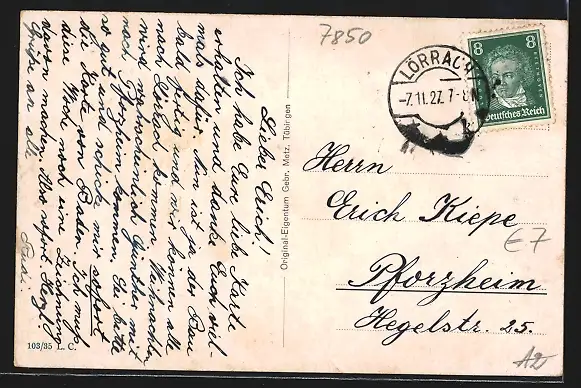 Lieber Erich!
Ich habe Eure liebe Karte
erhalten und danke Euch viel-
mals dafür. Nun ist ja der Bau
bald fertig und wir können alle
nach Lörrach kommen. Weihnachten
wird wahrscheinlich Günther mit
nach Pforzheim kommen. Ei bitte
so gut und schicke mir sofort
die Karte von Baden. Ich muß
diese Woche noch eine Zeichnung
davon machen. Also sofort
Grüße an alle
Original-Eigentum Gebr. Metz, Tübingen
103/35 L. C.
7850
LÖRRACH
-7.11.27. 7-8
8 8
BEETHOVEN
Deutsches Reich
Herrn
Erich Kiepe
Pforzheim
Hegelstr. 25.
€7